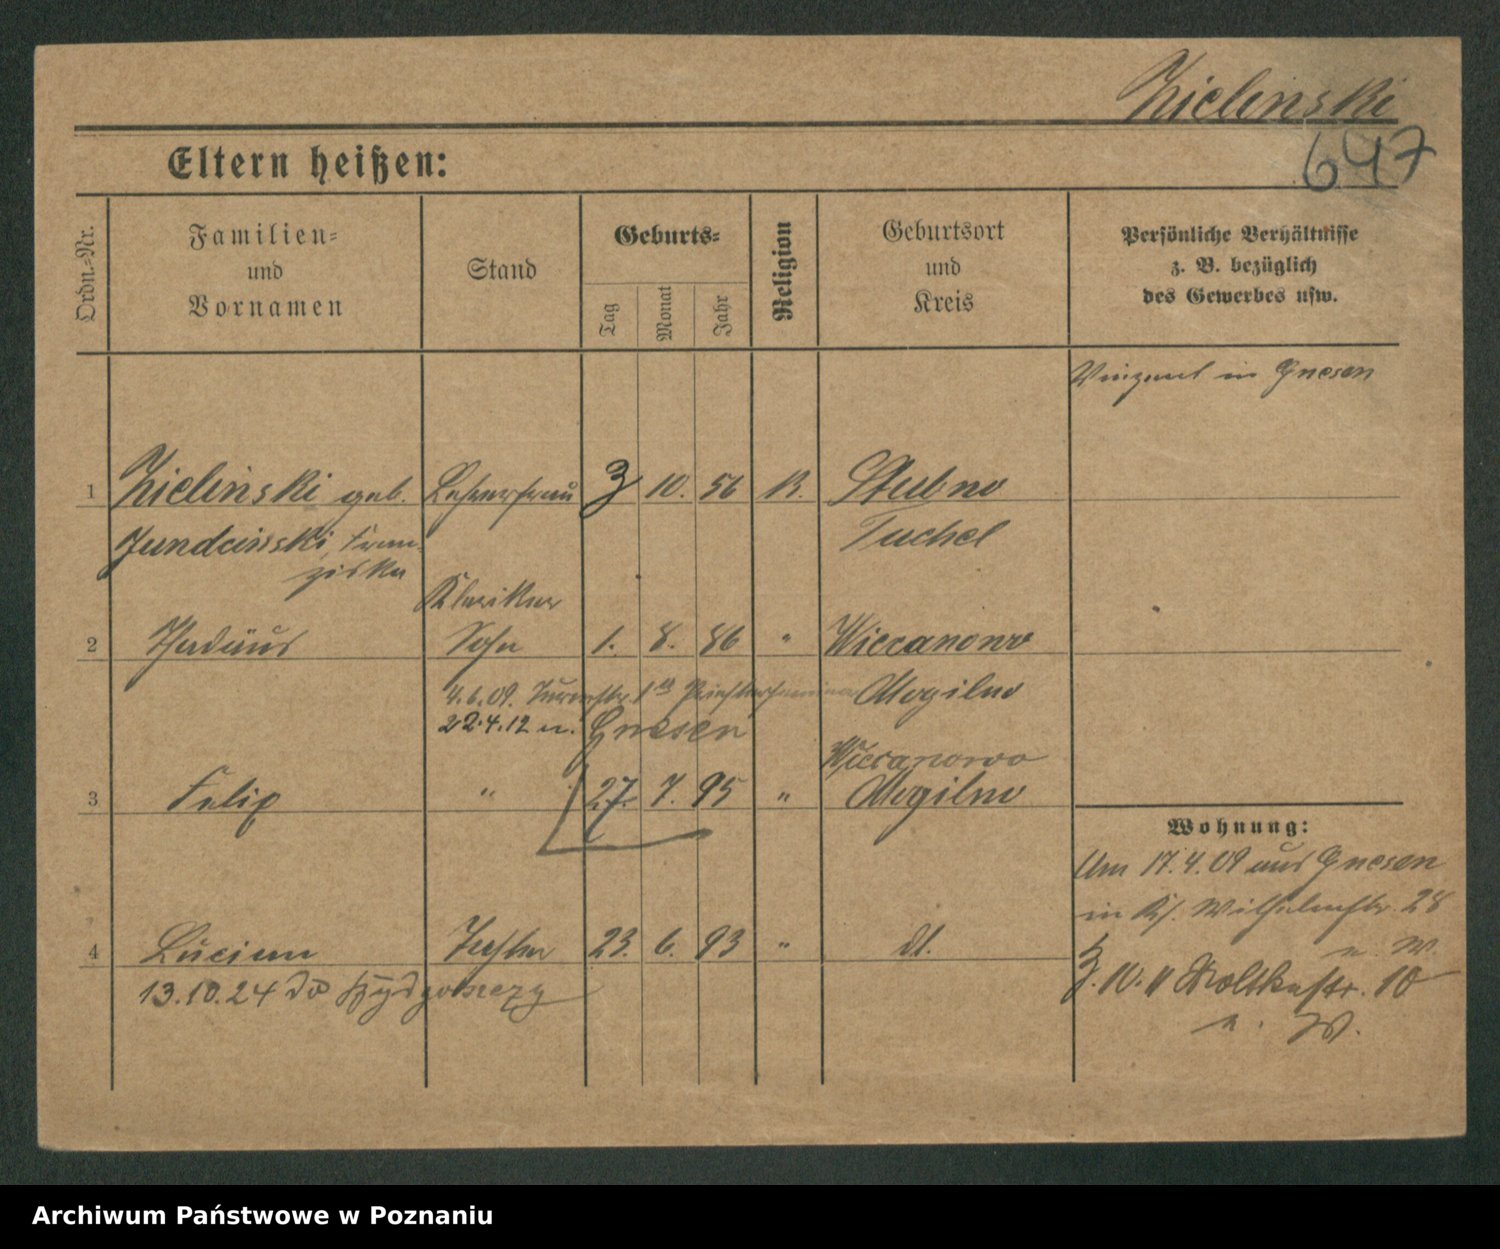 Zielinski
647
Eltern heißen:
Ordn.=Nr.
Familien=
und
Vornamen
Stand
Geburts=
Tag
Monat
Jahr
Religion
Geburtsort
und
Kreis
Persönliche Verhältnisse
z. B. bezüglich
des Gewerbes usw.
in Gnesen
1 Zielinski geb. Lehrerfrau 3 10. 56 K. Stubno
Fran- Tuchel
ziska
Kleriker
2 Thadäus Sohn 1. 8. 86 " Wiecanowo
4.6.09. Priesterseminar Mogilno
22.4.12 n. Gnesen
Wiecanowo
3 Felix " 27. 7. 95 " Mogilno
Wohnung:
Am 17.4.09 aus Gnesen
in Wilhelmstr. 28
n. W.
4 Lucian 23. 6. 93 " dt.
13.10.24 do Bydgoszczy
3.10.11 Moltkestr. 10
n. W.
Archiwum Państwowe w Poznaniu